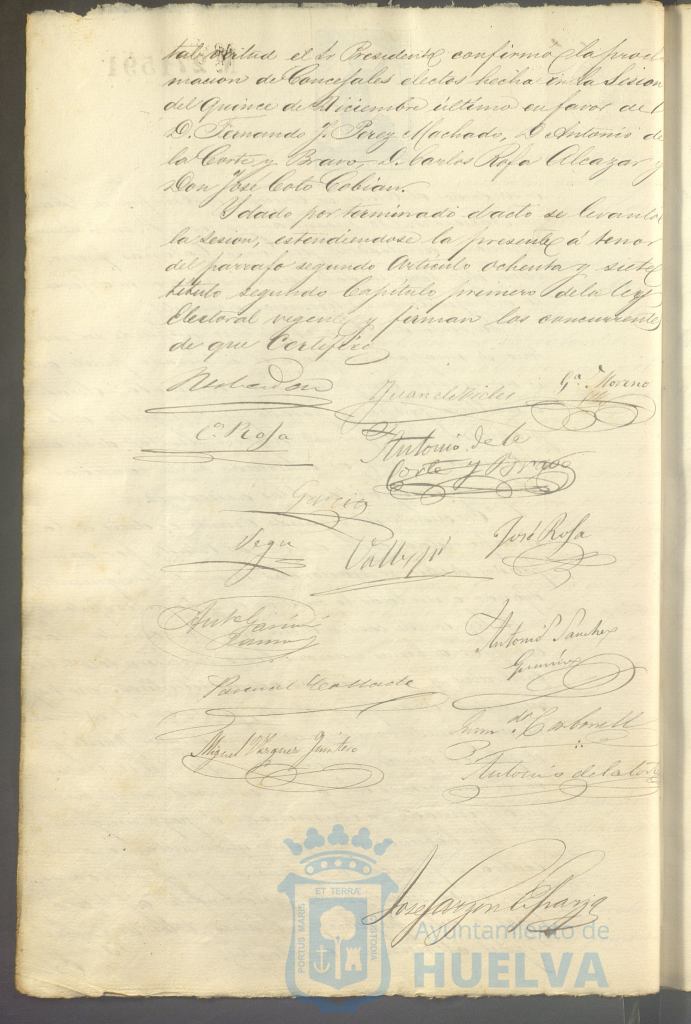 tal virtud el Sr Presidente confirmó la procla
macion de Concejales electos hecha en la Sesion
del quince de Diciembre último en favor de
D. Fernando J. Perez Machado, D Antonio de
la Corte y Bravo, D. Carlos Rofa Alcazar y
Don José Coto Cobian.
Y dado por terminado el acto se levantó
la sesion, estendiendose la presente á tenor
del párrafo segundo Artículo ochenta y siete
título segundo Capítulo primero de la Ley
Electoral vigente y firman los concurrentes
de que Certifico
Ga. Moreno
C. Rofa
Antonio de la
Corte y Bravo
García
Vega
José Rofa
Antº García
Ramos
Antonio Sanchez
Pascual
Miguel Vazquez Quintero
Carbonell
Antonio de la Torre
José Garzon
ET TERRÆ
PORTUS MARIS
CUSTODIA
Ayuntamiento de
HUELVA